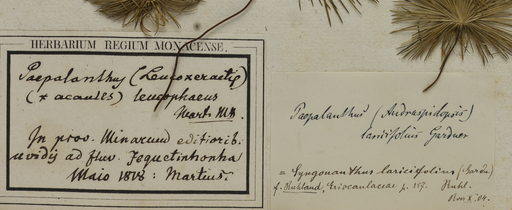 HERBARIUM REGIUM MONACENSE.
Paepalanthus (
( acaules) leucophaeus
Mart.
In prov. Minarum editiorib.
uvidis ad fluv. Jequetinhonha
Maio 1818: Martius.
Paepalanthus (Andraspidopsis)
laricifolius Gardner
= Syngonanthus laricifolius (Gardn.)
f. Ruhland, Eriocaulaceae p. 257. Ruhl.